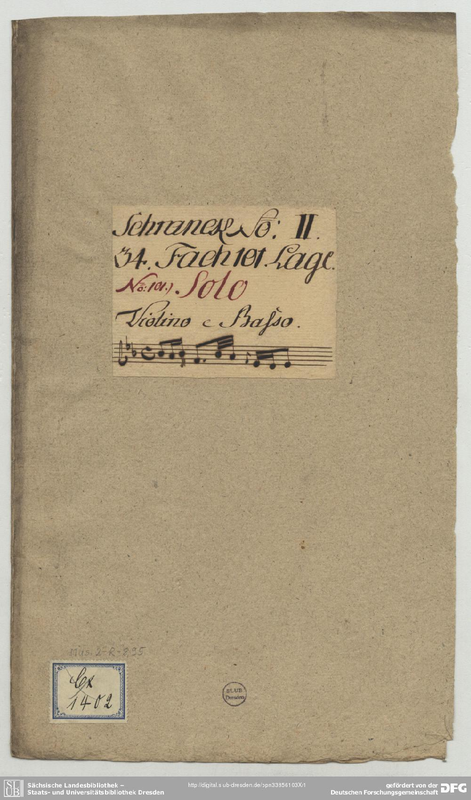 Schranck No: II.
34. Fach 101. Lage.
No: 101.) Solo
Violino e Basso.
Mus. 2-R-8,35
Cx
1402
SLUB
Dresden
Sächsische Landesbibliothek –
Staats- und Universitätsbibliothek Dresden
gefördert von der
Deutschen Forschungsgemeinschaft
DFG